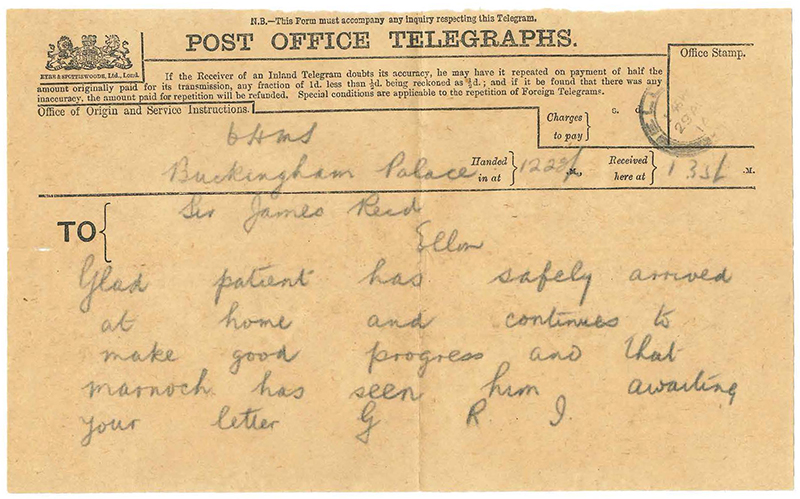 N.B.—This Form must accompany any inquiry respecting this Telegram.
POST OFFICE TELEGRAPHS.
Office Stamp.
EYRE & SPOTTISWOODE, Ltd., Lond.
If the Receiver of an Inland Telegram doubts its accuracy, he may have it repeated on payment of half the
amount originally paid for its transmission, any fraction of 1d. less than ½d. being reckoned as ½d.; and if it be found that there was any
inaccuracy, the amount paid for repetition will be refunded. Special conditions are applicable to the repetition of Foreign Telegrams.
Office of Origin and Service Instructions.
Charges
to pay
OHMS
Buckingham Palace
Handed
in at
M.,
Received
here at
.M.
TO
Sir James Reid
Ellon
Glad patient has safely arrived
at home and continues to
make good progress and that
marnoch has seen him awaiting
your letter G R I.